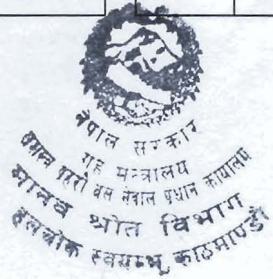 नेपाल सरकार
गृह मन्त्रालय
सशस्त्र प्रहरी बल नेपाल प्रधान कार्यालय
मानव श्रोत विभाग
हलचोक स्वयम्भू काठमाण्डौ